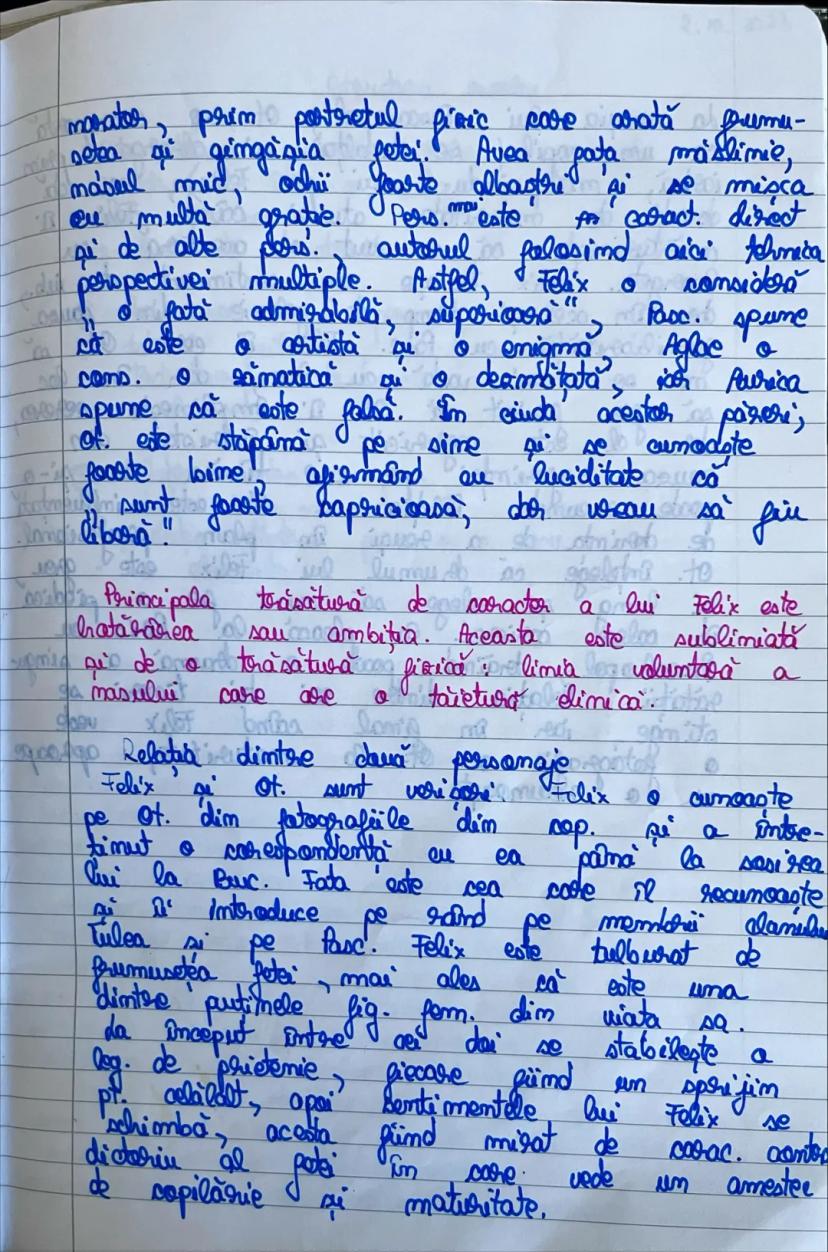 narator, prin portretul fizic care arată frumu-
sețea și gingășia fetei. Avea fața măslinie,
năsul mic, ochii foarte albaștri și se mișca
cu multă grație. Pers. mai este caract. direct
și de alte pers., autorul folosind aici tehnica
perspectivei multiple. Astfel, Felix o consideră
„o fată admirabilă, superioară", Pasc. spune
că este o artistă și o enigmă, Aglae o
cons. o zănatică și o dezmățată, iar Aurica
spune că este falsă. În ciuda acestor păreri,
Ot. este stăpână pe sine și se cunoaște
foarte bine, afirmând cu luciditate că
„sunt foarte capricioasă, dar vreau să fiu
liberă".
Principala trăsătură de caracter a lui Felix este
hotărârea sau ambiția. Aceasta este subliniată
și de o trăsătură fizică: linia voluntară a
năsului care are o tăietură elinică.
Relația dintre două personaje
Felix și Ot. sunt verișori. Felix o cunoaște
pe Ot. din fotografiile din cop. și a între-
ținut o corespondență cu ea până la sosirea
lui la Buc. Fata este cea care îl recunoaște
și îi introduce pe rând pe membrii clanului
Tulea și pe Pasc. Felix este tulburat de
frumusețea fetei, mai ales că este una
dintre puținele fig. fem. din viața sa.
La început între cei doi se stabilește o
leg. de prietenie, fiecare fiind un sprijin
pt. celălalt, apoi sentimentele lui Felix se
schimbă, acesta fiind mirat de carac. contra
dictoriu al fetei în care vede un amestec
de copilărie și maturitate.